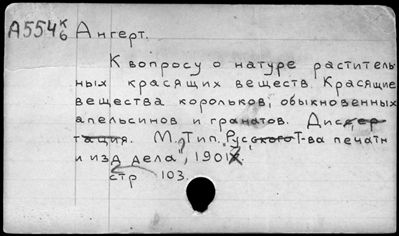 А554 к/6 Ангерт.
К вопросу о натуре раститель-
ных красящих веществ. Красящие
вещества корольков, обыкновенных
апельсинов и гранатов. Диссер-
тация. М., Тип. Русского Т-ва печатн
и изд дела", 1901.
стр 103.